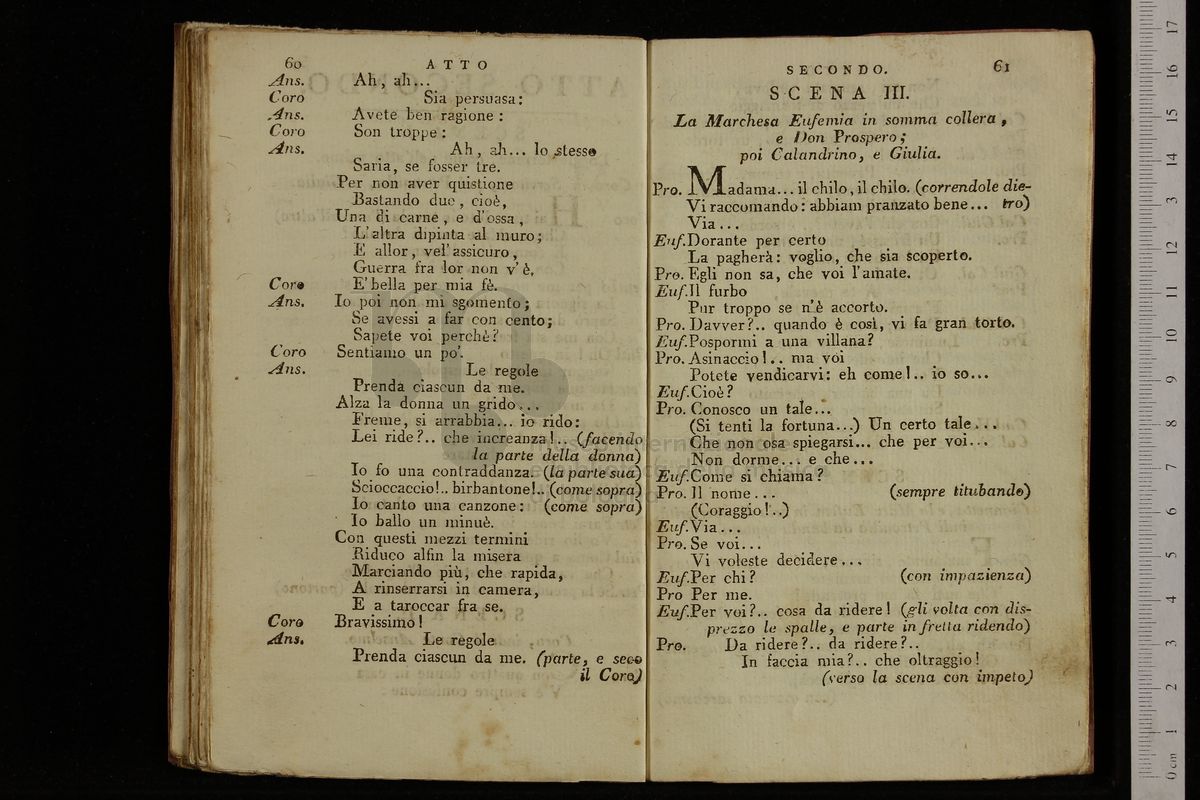 60 ATTO
Ans. Ah, ah...
Coro Sia persuasa:
Ans. Avete ben ragione:
Coro Son troppe:
Ans. Ah, ah... lo stesso
Saria, se fosser tre.
Per non aver quistione
Bastando due, cioè,
Una di carne, e d'ossa,
L'altra dipinta al muro;
E allor, vel' assicuro,
Guerra fra lor non v'è,
Coro E' bella per mia fè.
Ans. Io poi non mi sgomento;
Se avessi a far con cento;
Sapete voi perchè?
Coro Sentiamo un po'.
Ans. Le regole
Prenda ciascun da me.
Alza la donna un grido...
Freme, si arrabbia... io rido:
Lei ride?.. che increanza!.. (facendo
la parte della donna)
Io fo una contraddanza. (la parte sua)
Scioccaccio!.. birbantone!.. (come sopra)
Io canto una canzone: (come sopra)
Io ballo un minuè.
Con questi mezzi termini
Riduco alfin la misera
Marciando più, che rapida,
A rinserrarsi in camera,
E a taroccar fra se.
Coro Bravissimo!
Ans. Le regole
Prenda ciascun da me. (parte, e seco
il Coro)
SECONDO. 61
SCENA III.
La Marchesa Eufemia in somma collera,
e Don Prospero;
poi Calandrino, e Giulia.
Pro. Madama... il chilo, il chilo. (correndole die-
Vi raccomando: abbiam pranzato bene... tro)
Via...
Euf. Dorante per certo
La pagherà: voglio, che sia scoperto.
Pro. Egli non sa, che voi l'amate.
Euf. Il furbo
Pur troppo se n'è accorto.
Pro. Davver?.. quando è così, vi fa gran torto.
Euf. Pospormi a una villana?
Pro. Asinaccio!.. ma voi
Potete vendicarvi: eh come!.. io so...
Euf. Cioè?
Pro. Conosco un tale...
(Si tenti la fortuna...) Un certo tale...
Che non osa spiegarsi... che per voi...
Non dorme... e che...
Euf. Come si chiama?
Pro. Il nome... (sempre titubando)
(Coraggio!..)
Euf. Via...
Pro. Se voi...
Vi voleste decidere...
Euf. Per chi? (con impazienza)
Pro Per me.
Euf. Per voi?.. cosa da ridere! (gli volta con dis-
prezzo le spalle, e parte in fretta ridendo)
Pro. Da ridere?.. da ridere?..
In faccia mia?.. che oltraggio!
(verso la scena con impeto)
0 cm 1 2 3 4 5 6 7 8 9 10 11 12 13 14 15 16 17